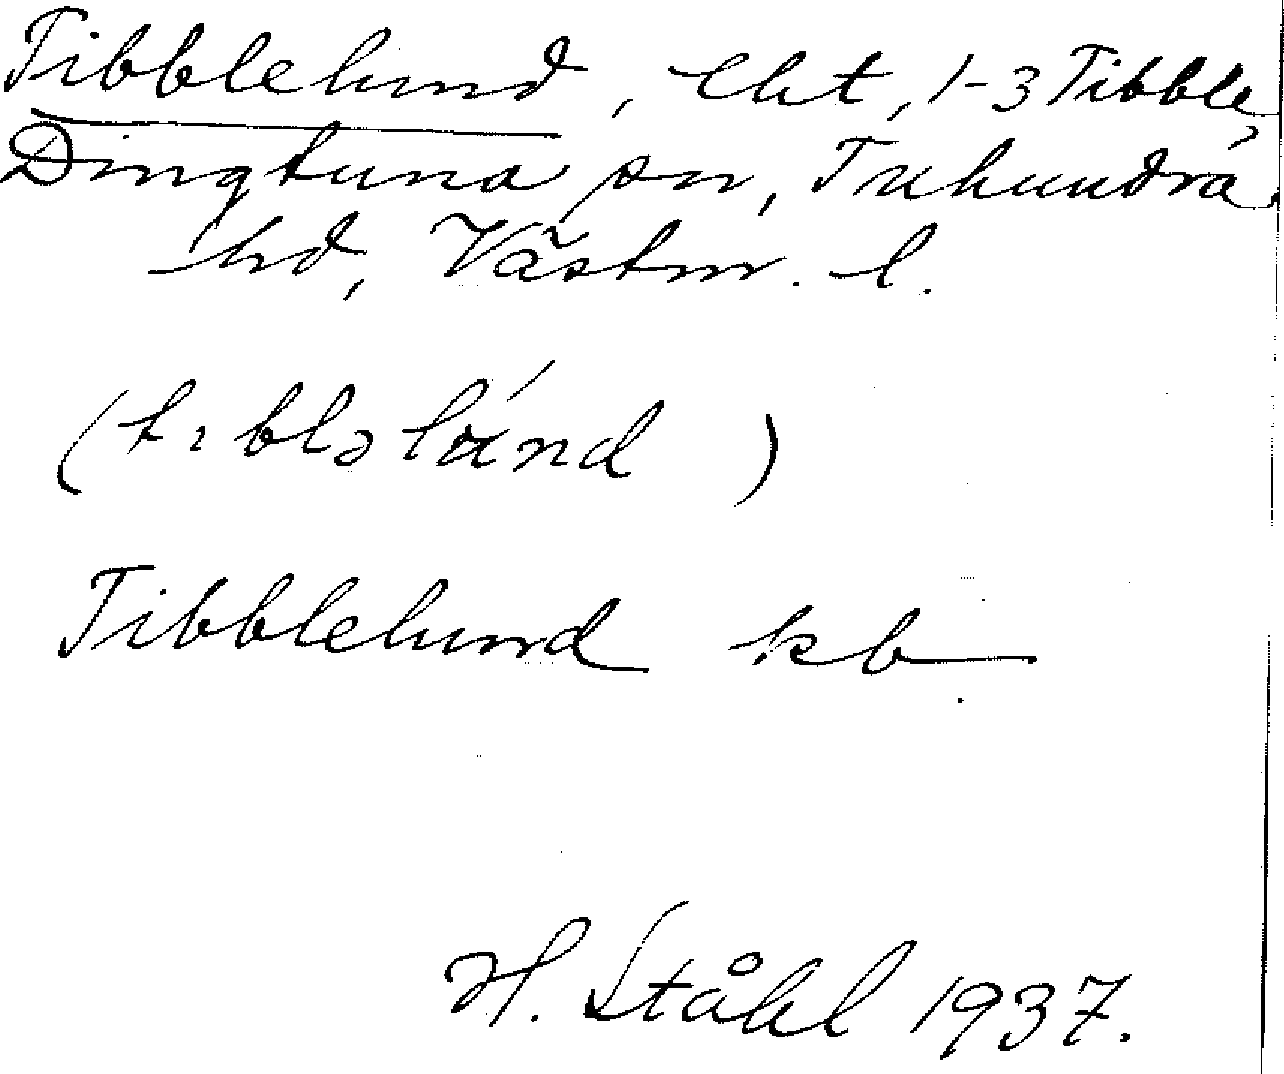 Tibblelund, lht, 1-3 Tibble,
Dingtuna sn, Tuhundra
hd, Västm. l.
Tibblelund kb
H. Ståhl 1937.